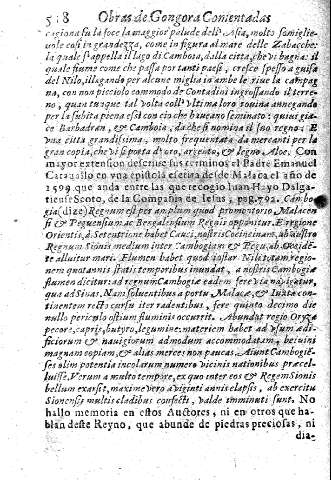 518 Obras de Gongora Comentadas
cagiona su la foce la maggior palude dell'Asia, molto somiglie-
uole cosi in grandezza, come in figura al mare delle Zabacche:
la quale s'appella il lago di Camboia, dalla città, che vi bagna: il
qual fiume come che passa por tanti paesi, cresce spesso a guisa
del Nilo, allagando per alcune miglia in ambe le riue la campag-
na, con non picciolo commodo de Contadini ingrossando il terre-
no, quantunque tal volta coll'vltima loro rouina annegando
per la subita piena essi con cio che haueano seminato: quiui gia-
ce Barbadran, & Camboia, da che si nomina il suo regno: E
vna città grandissima, molto frequentata da mercanti per la
gran copia, che vi si porta di oro, argento, & legno Aloe. Con
mayor extension descriue sus terminos el Padre Emanuel
Caruallo en vna epistola escrita desde Malaca el año de
1599 que anda entre las que recogio Iuan Hayo Dalga-
tiense Scoto, de la Compañia de Iesus, pag. 792. Cambo-
ia (dize) Regnum est per amplum quod promontorio Malacen-
si & Peguensium ac Bengalensium Regiis opponitur. E regione
Orientis, & Setentrione habet Cauci, nostris Cocincinam, ab austro
Regnum Sionis medium inter Cambogiam & Pegu, ab Occidē-
te alluitur mari. Flumen habet quod instar Nili totam regio-
nem quotannis statis temporibus inundat, a nostris Cambogiæ
flumen dicitur: ad regnum Cambogiæ eadem fere via nauigatur,
qua ad Sinas. Nam soluentibus a portu Malacæ, & iuxta con-
tinentem recto cursu iter tenentibus, fere quinto decimo die
nullo periculo ostium fluminis occurrit. Abundat regio Oryza
pecore, capris, butyro, legumine: materiem habet ad vsum ædi-
ficiorum & nauigiorum admodum accommodatam, beiuini
magnam copiam, & alias merces non paucas. Aiunt Cambogiē-
ses olim potentia incolarum numero vicinis nationibus præcel-
luisse. Verum a multo tempore, ex quo inter eos & Regem Sionis
bellum exarsit, maxime vero a viginti annis elapsis, ab exercitu
Sionensi multis cladibus confecti, valde imminuti sunt. No
hallo memoria en estos Auctores, ni en otros que ha-
blan deste Reyno, que abunde de piedras preciosas, ni
dia-